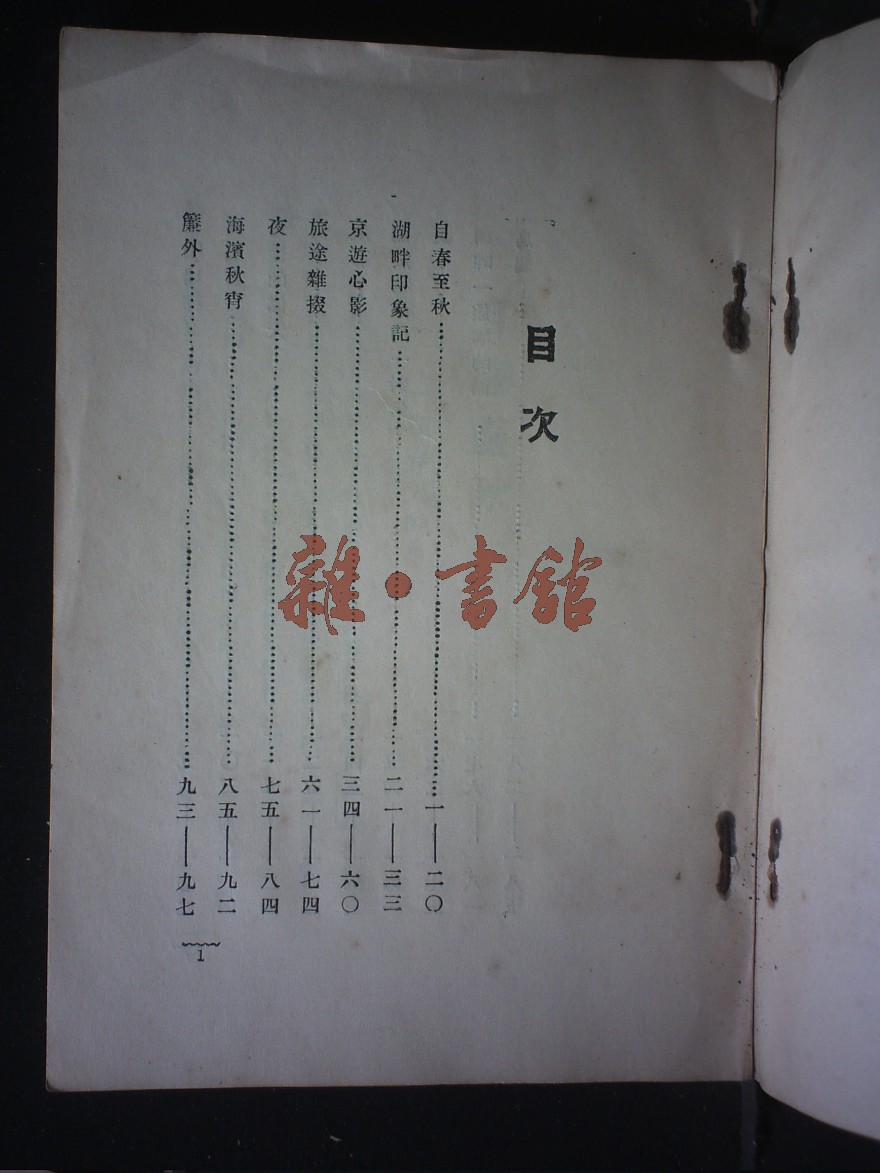 目次
自春至秋……一——二〇
湖畔印象記……二一——三三
京遊心影……三四——六〇
旅途雜掇……六一——七四
夜……七五——八四
海濱秋宵……八五——九二
簾外……九三——九七
1
雜·書館